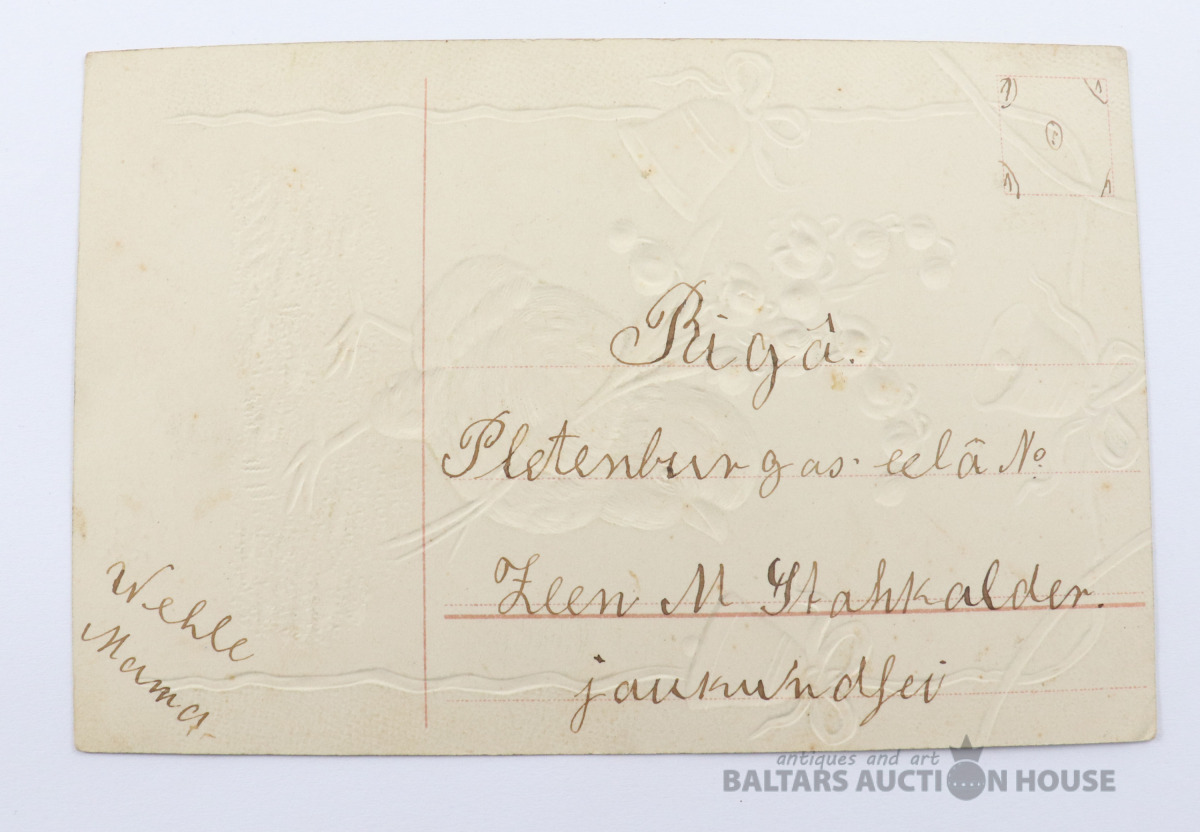 Rigâ.
Pletenburgas. eelâ No
Zeen M Stahkalder.
jaukundsei
Wehle
Mamma
antiques and art
BALTARS AUCTION HOUSE